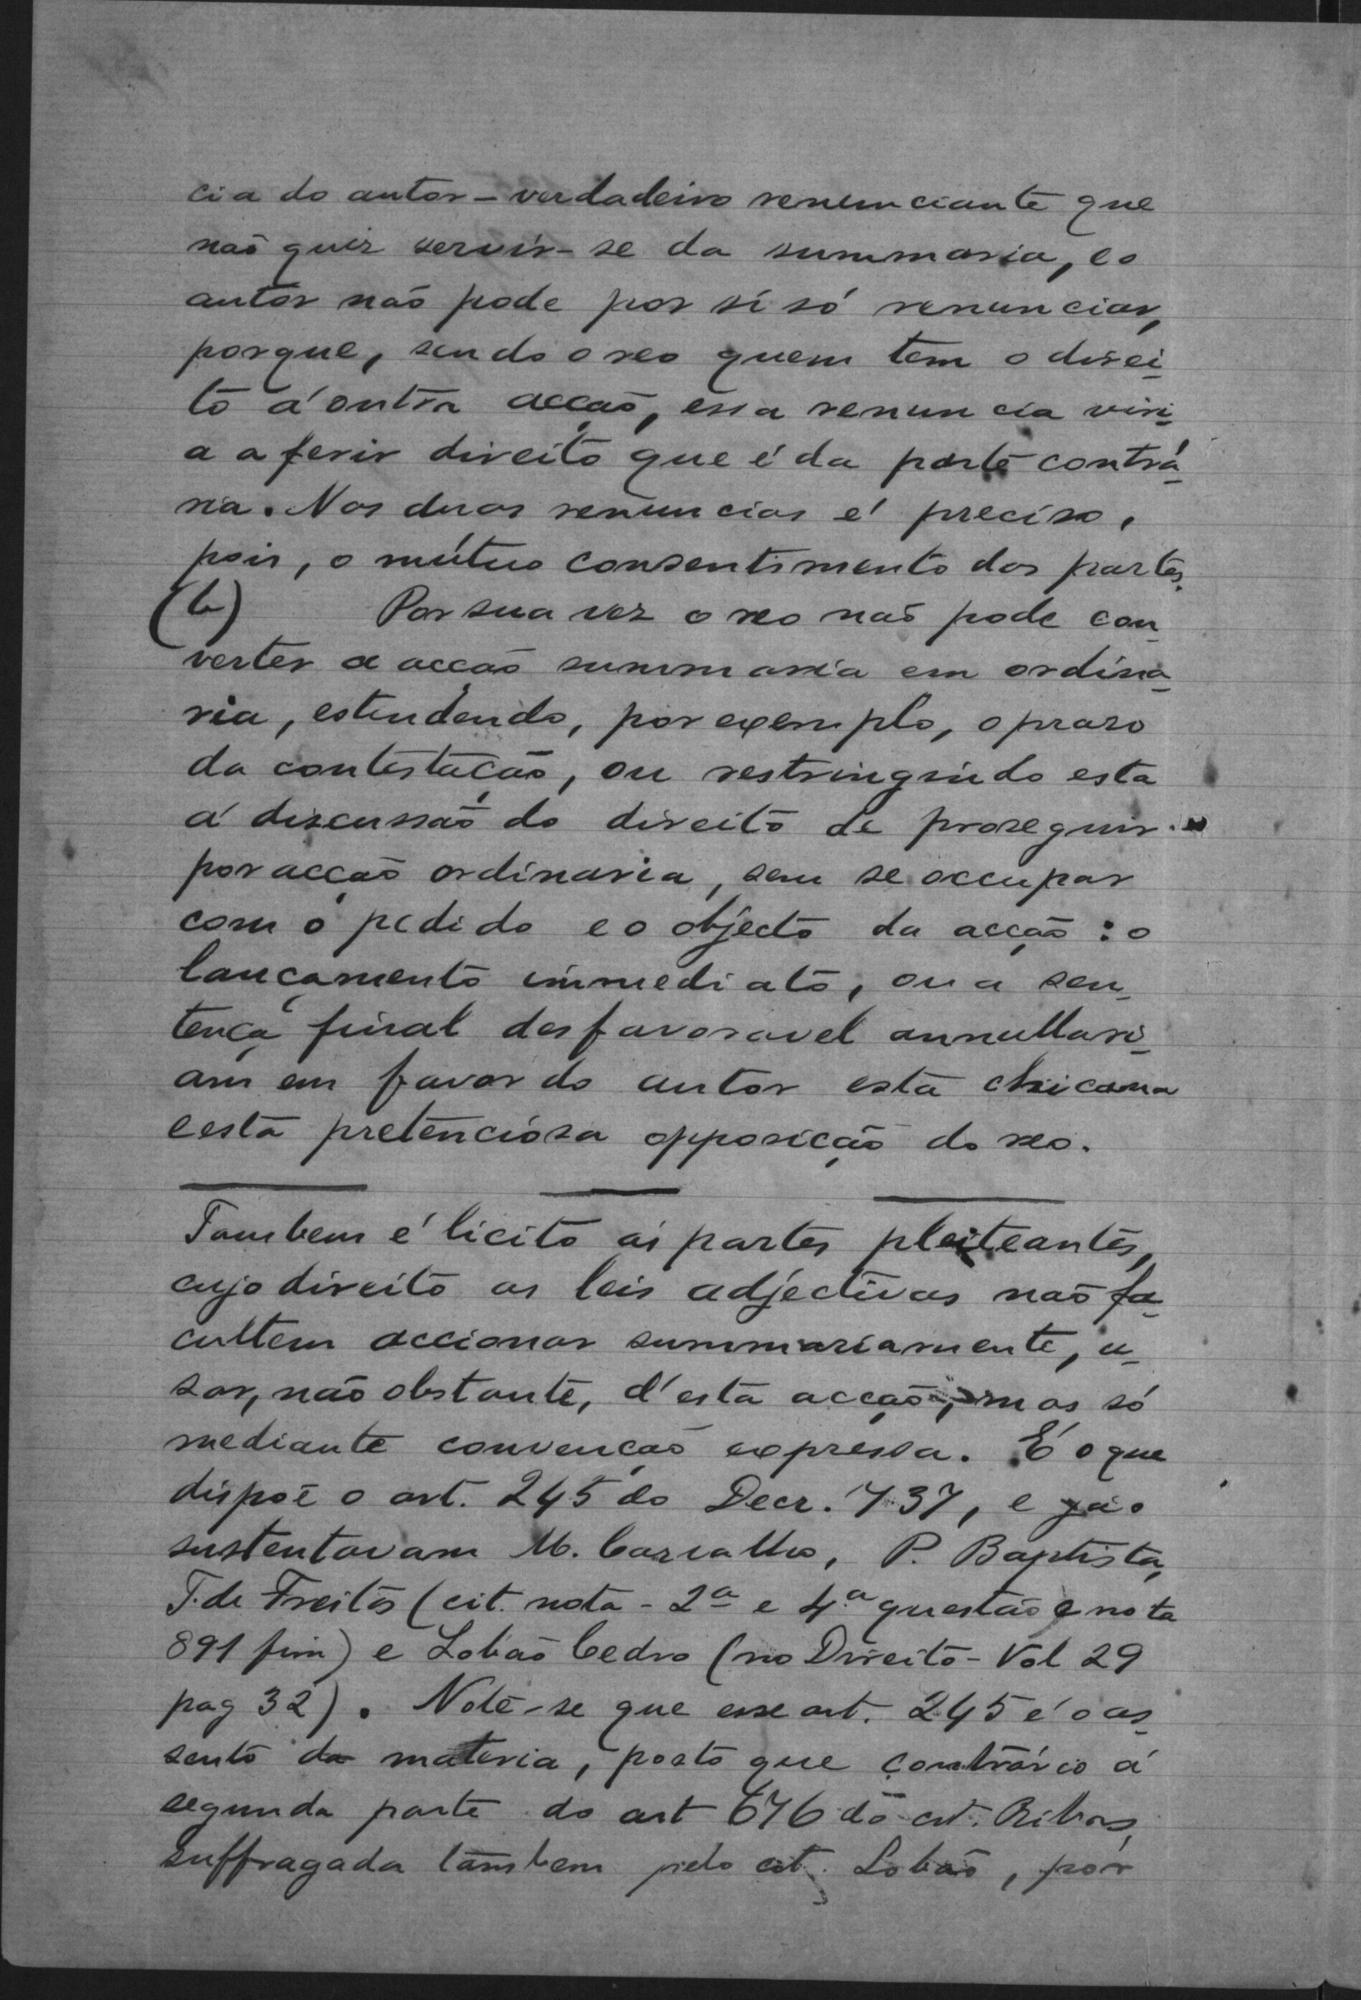 cia do autor - verdadeiro renunciante que
não quiz servir-se da summaria, e o
autor não pode por si só renunciar,
porque, sendo o reo quem tem o direi-
to á outra acção, essa renuncia viri-
a a ferir direito que é da parte contrá-
ria. Nas duas renuncias é preciso,
pois, o mútuo consentimento das partes.
(b) Por sua vez o reo não pode con-
verter a acção summaria em ordina-
ria, estendendo, por exemplo, o prazo
da contestação, ou restringindo esta
á discussão do direito de proseguir
por acção ordinaria, sem se occupar
com o pedido e o objecto da acção: o
lançamento immediato, ou a sen-
tença final desfavoravel annullari-
am em favor do autor esta chicana
e esta pretenciosa opposição do reo.
Tambem é licito ás partes pleiteantes,
cujo direito as leis adjectivas não fa-
cultem accionar summariamente, u-
sar, não obstante, d'esta acção, mas só
mediante convenção expressa. É o que
dispõe o art. 245 do Decr. 737, e já o
sustentavam M. Carvalho, P. Baptista,
T. de Freitas (cit. nota - 2ª e 4ª questão e nota
891 fim) e Lobão Cedro (no Direito - Vol 29
pag 32). Note-se que esse art. 245 é o as-
sento da materia, posto que contrário á
segunda parte do art 676 do cit. Ribas,
suffragada tambem pelo cit. Lobão, por